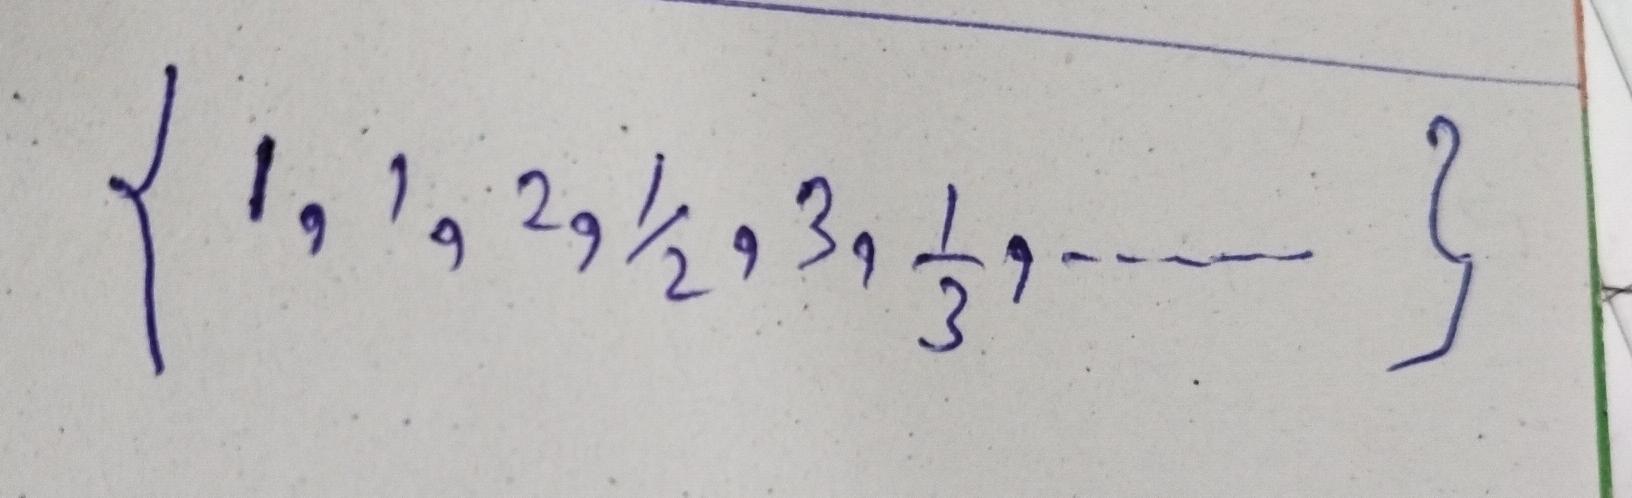 { 1, 1, 2, 1/2, 3, 1/3, ------ }